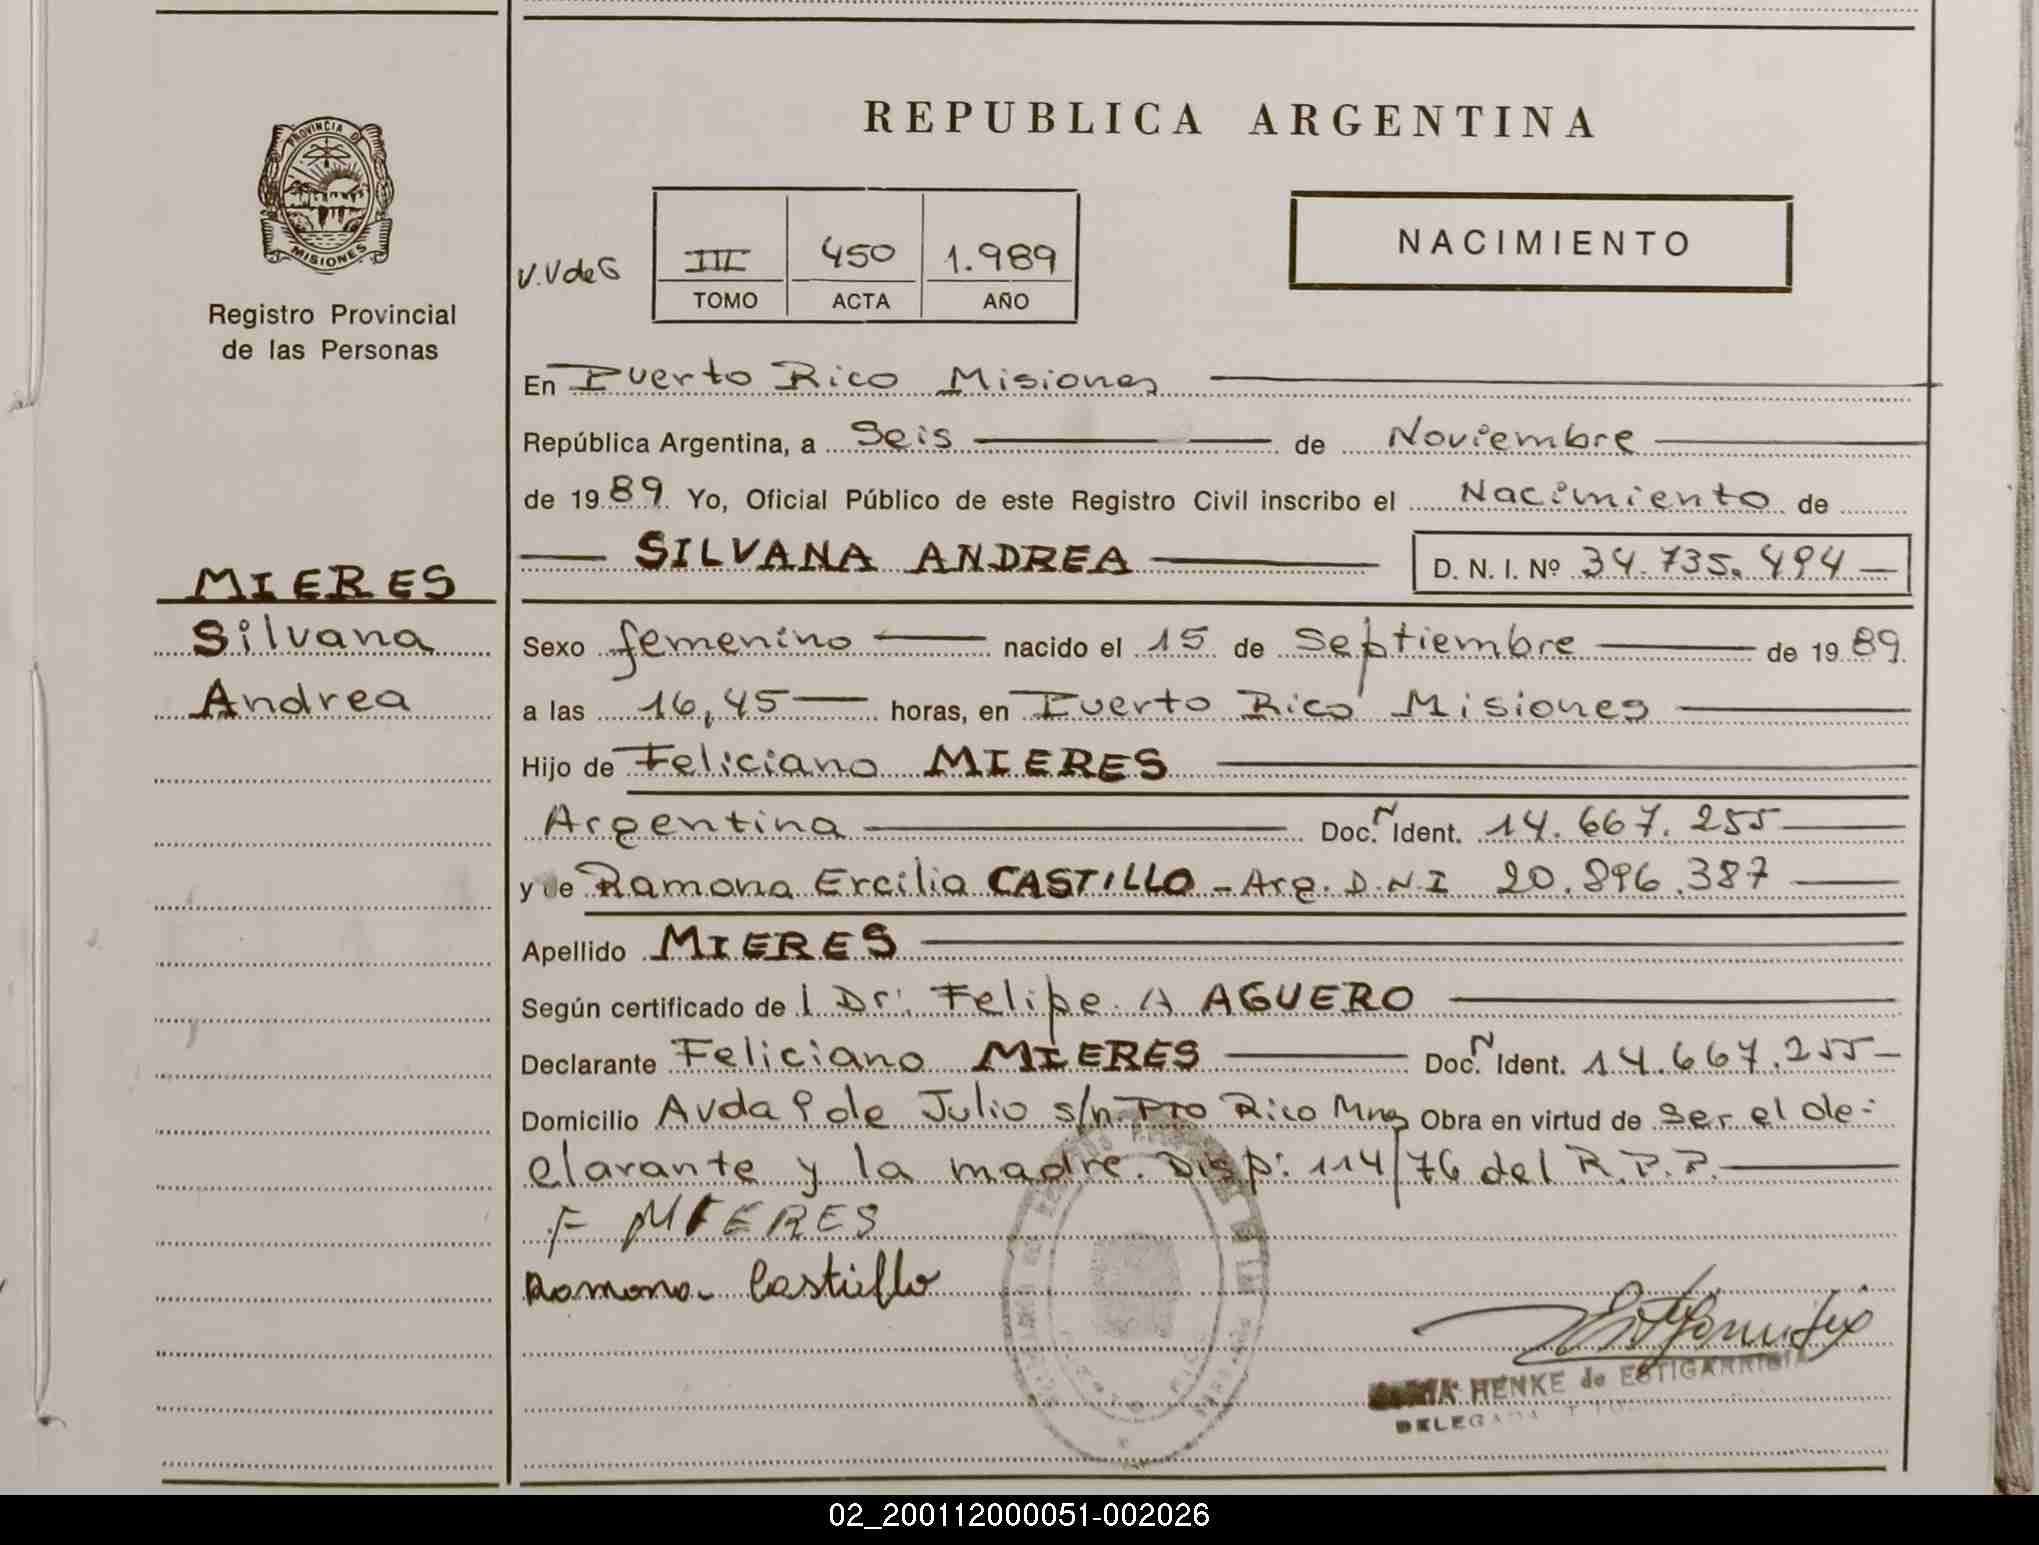 REPUBLICA ARGENTINA
PROVINCIA DE
MISIONES
Registro Provincial
de las Personas
V.V de G
III 450 1.989
TOMO ACTA AÑO
NACIMIENTO
En Puerto Rico Misiones
República Argentina, a Seis de Noviembre
de 1989 Yo, Oficial Público de este Registro Civil inscribo el Nacimiento de
SILVANA ANDREA D. N. I. Nº 34.735.494
MIERES
Silvana
Andrea
Sexo femenino nacido el 15 de Septiembre de 1989
a las 16,45 horas, en Puerto Rico Misiones
Hijo de Feliciano MIERES
Argentina Doc. N Ident. 14.667.255
y de Ramona Ercilia CASTILLO - Arg. D.N.I 20.896.387
Apellido MIERES
Según certificado de l Dr: Felipe A AGUERO
Declarante Feliciano MIERES Doc. N Ident. 14.667.255
Domicilio Avda 9 de Julio s/n. Pto Rico Mnes Obra en virtud de ser el de-
clarante y la madre. Disp: 114/76 del R.P.P.
F MIERES
Ramona Castillo
HENKE de ESTIGARRIBIA
DELEGADA
02_200112000051-002026